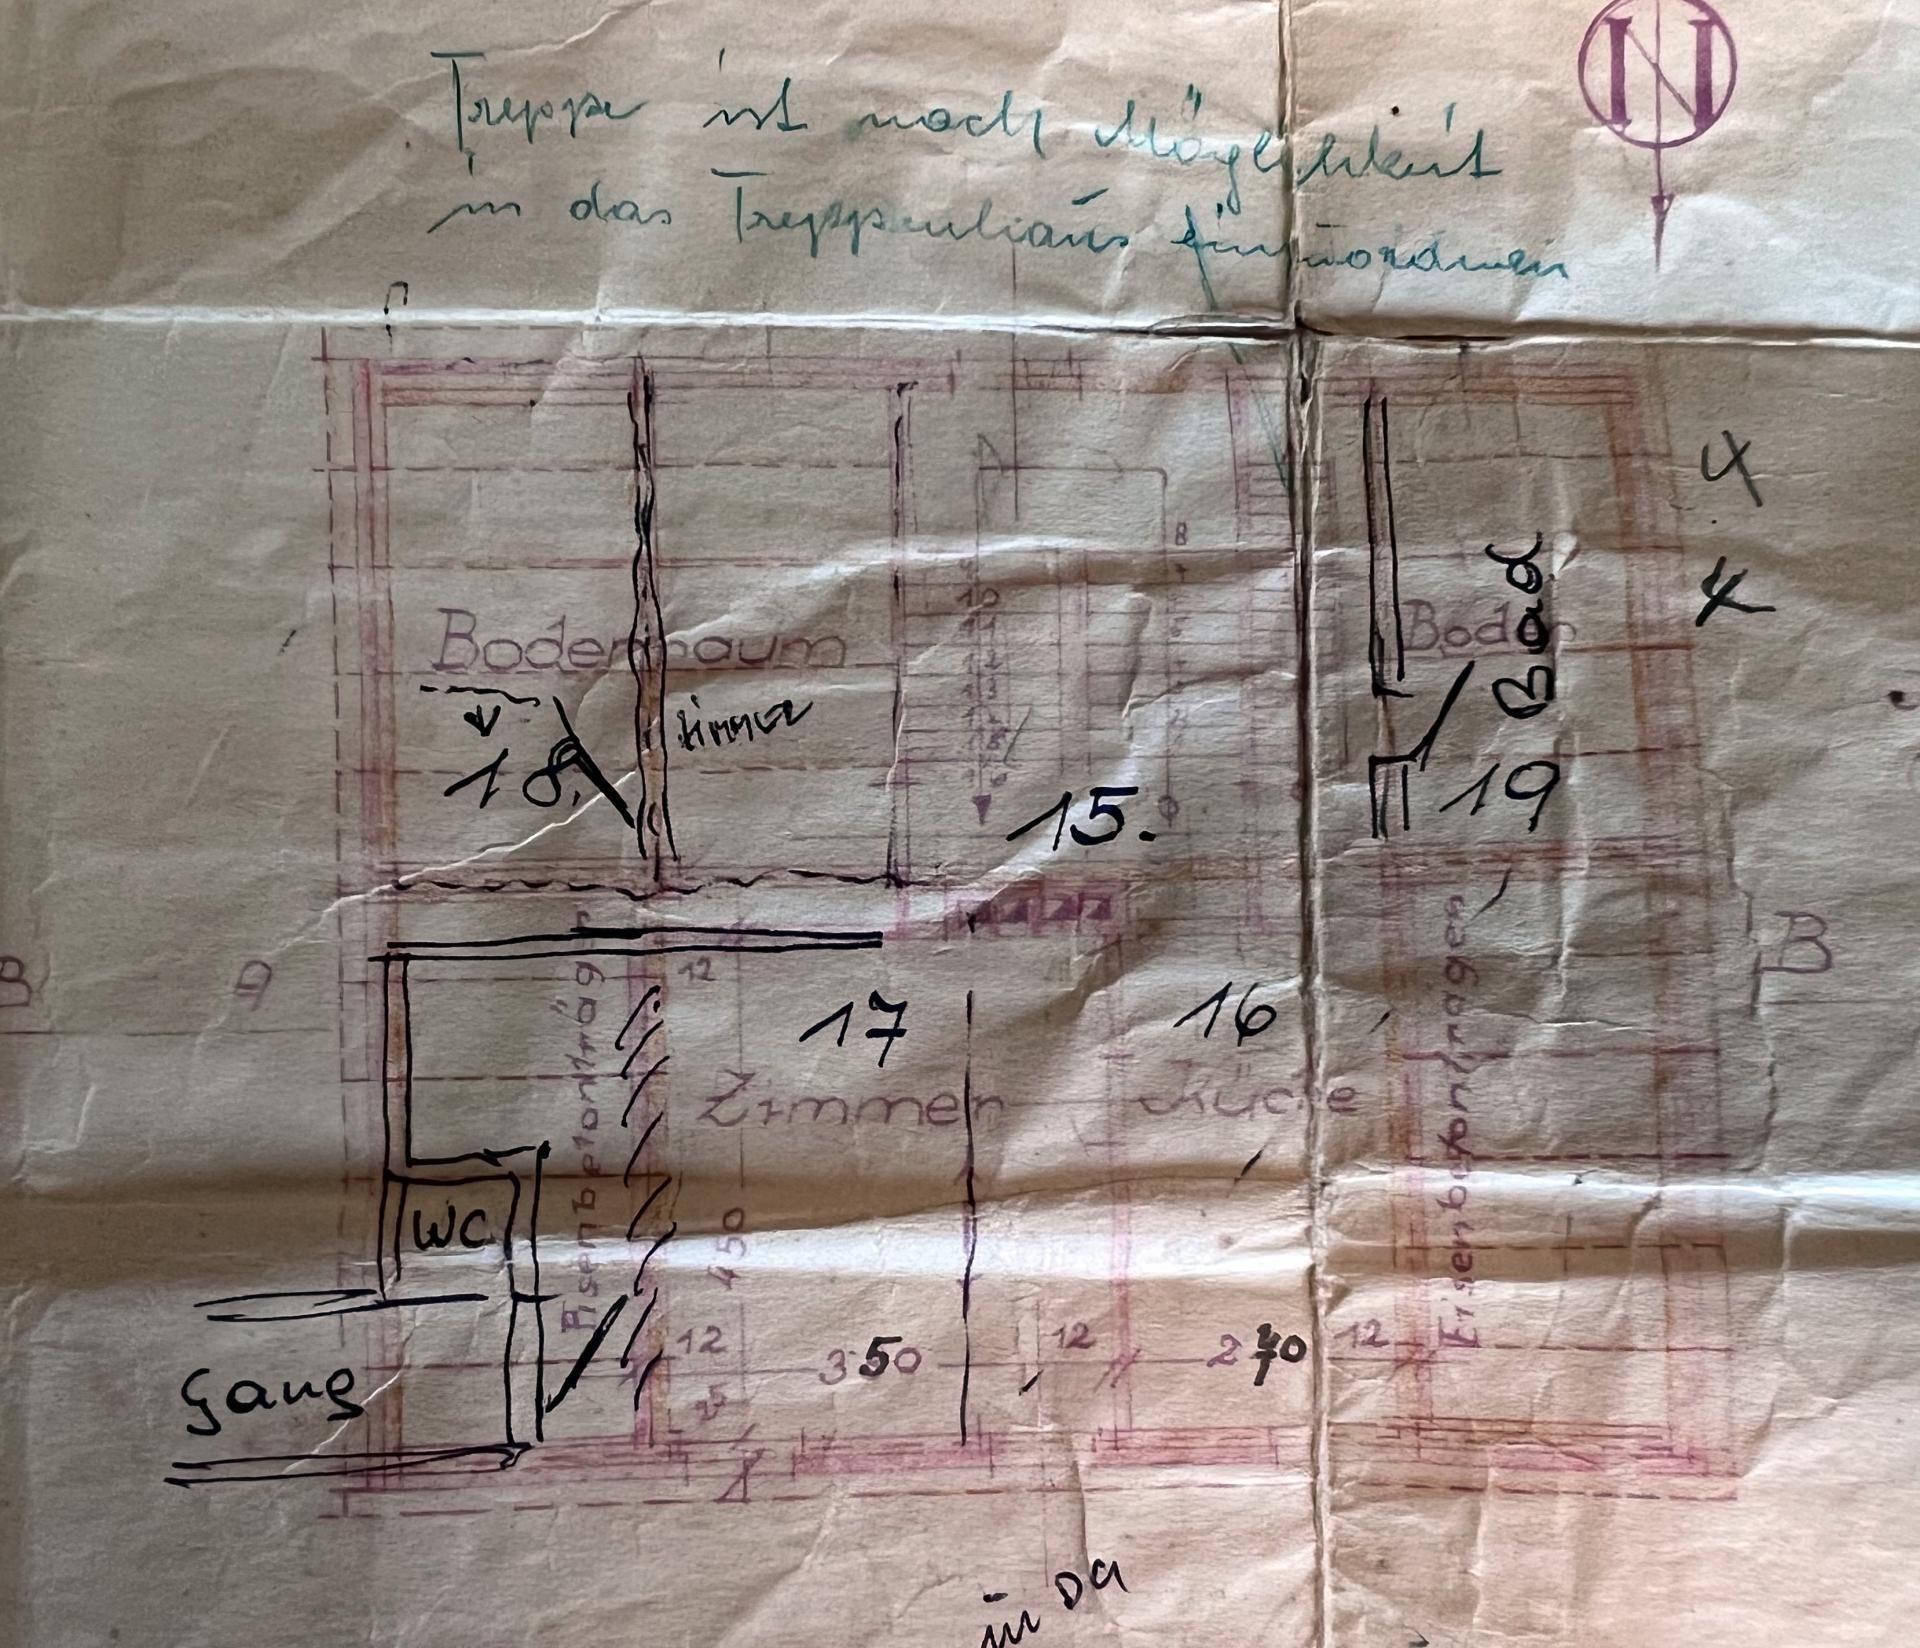 N
Treppe ist nach Möglichkeit
in das Treppenhaus einzuordnen
4
4
8
10
11
12
13
Bodenraum
Boden
Bad
zimmer
18.
15.
19
B
9
B
12
17
16
Eisenbetonträger
Zimmer
Küche
Eisenbetonträger
450
WC
12
350
12
270
12
25
Gang
in DA